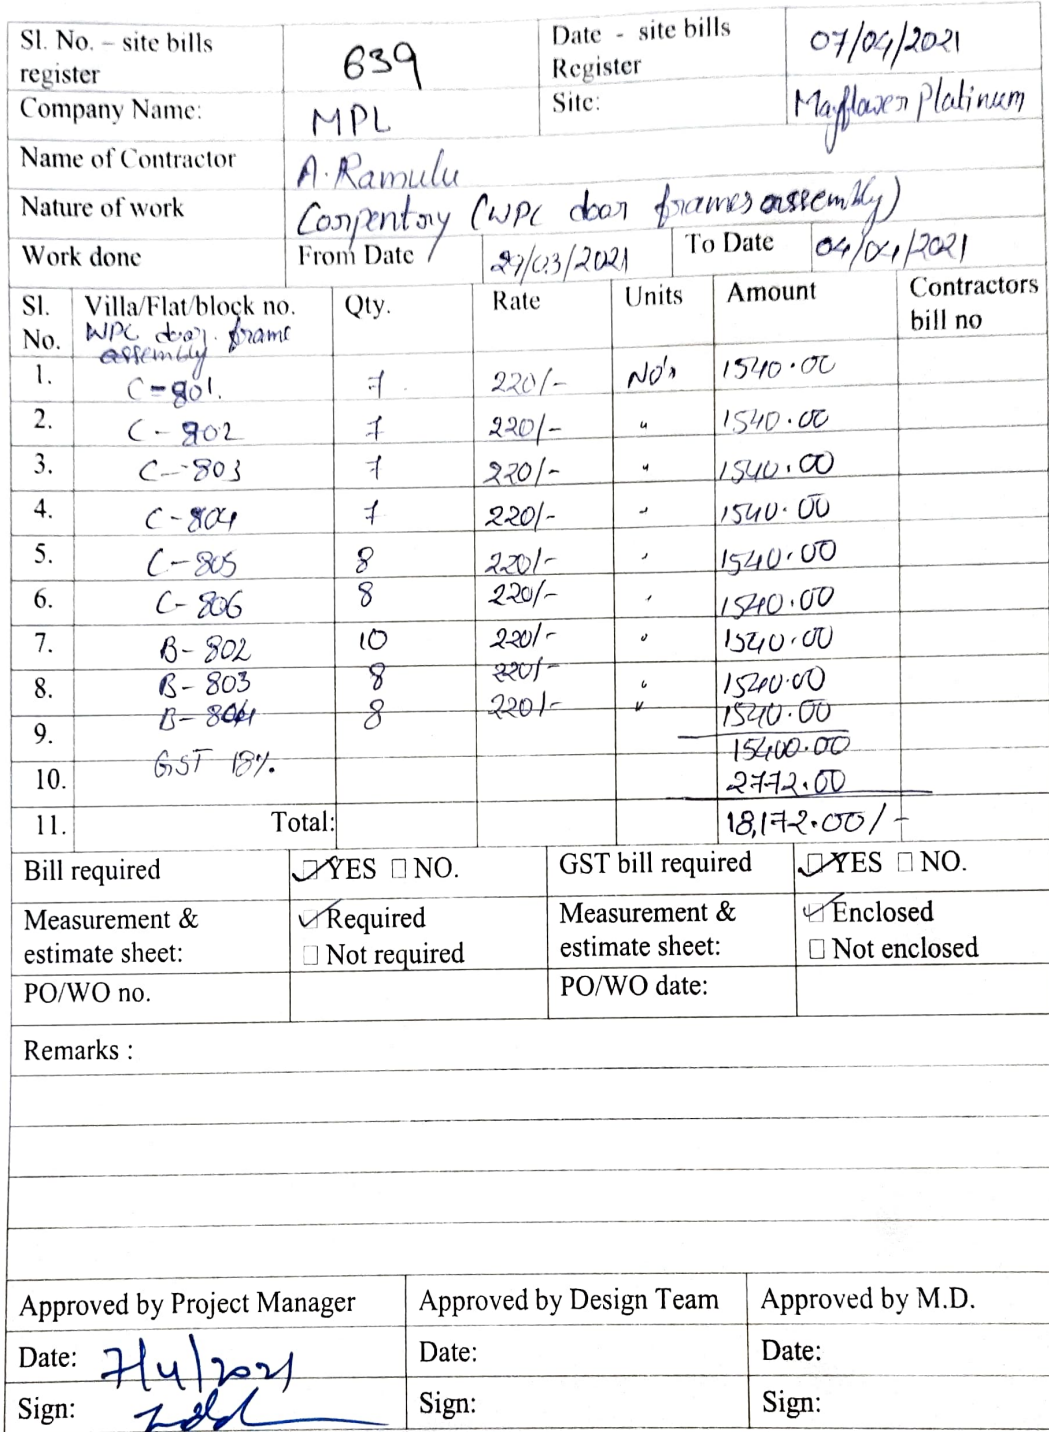 Sl. No. – site bills register 639 Date - site bills Register 07/04/2021
Company Name: MPL Site: Mayflower Platinum
Name of Contractor A. Ramulu
Nature of work Carpentory (WPC door frames assembly)
Work done From Date 27/03/2021 To Date 04/04/2021
Sl. No. Villa/Flat/block no. Qty. Rate Units Amount Contractors bill no
WPC door frame
assembly
1. C-801. 7 220/- No's 1540.00
2. C-802 7 220/- " 1540.00
3. C-803 7 220/- " 1540.00
4. C-804 7 220/- " 1540.00
5. C-805 8 220/- " 1540.00
6. C-806 8 220/- " 1540.00
7. B-802 10 220/- " 1540.00
8. B-803 8 220/- " 1540.00
B-804 8 220/- " 1540.00
9. 15400.00
10. GST 18%. 2772.00
11. Total: 18,172.00/-
Bill required YES NO. GST bill required YES NO.
Measurement & estimate sheet: Required Not required Measurement & estimate sheet: Enclosed Not enclosed
PO/WO no. PO/WO date:
Remarks :
Approved by Project Manager Approved by Design Team Approved by M.D.
Date: 7/4/2021 Date: Date:
Sign: Sign: Sign: